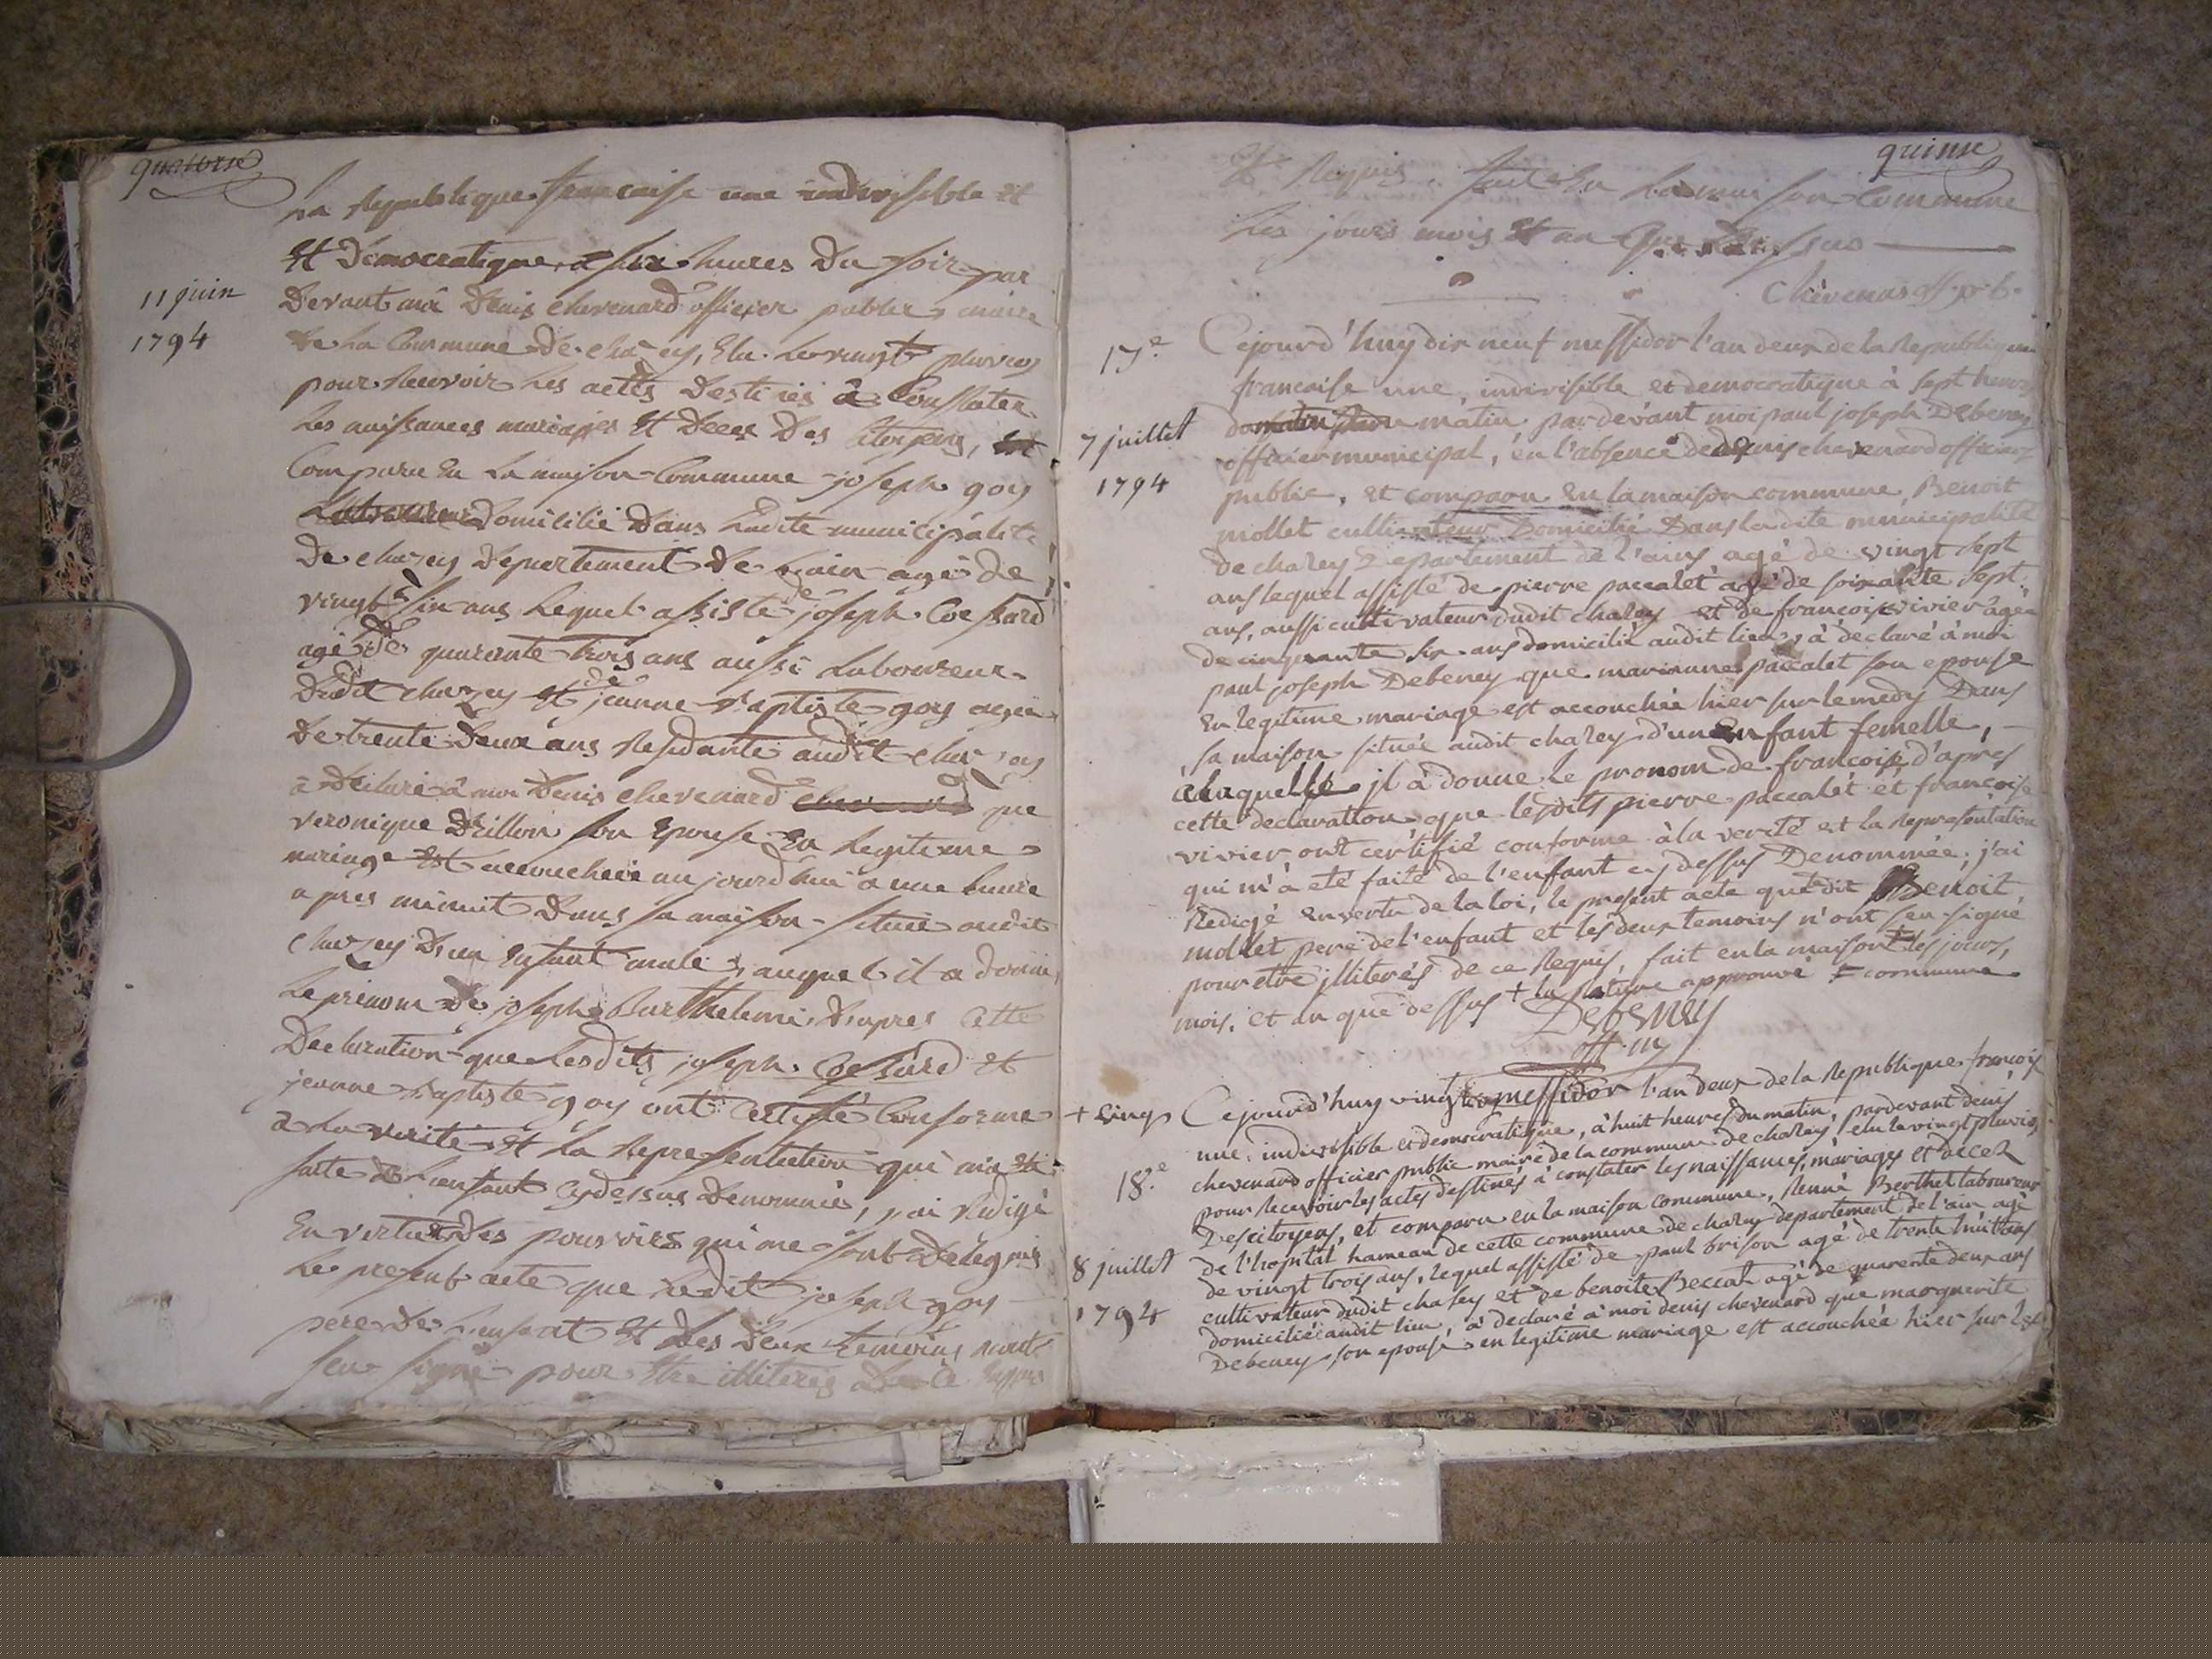 quatorse
La Republique francaise une indivisible et
Et Democratique, a six heures Du soir par
11 juin
1794
Devant moi Denis chevenard officier public, maire
de La Commune de chazey, Elu Le vingt pluvios
pour Recevoir Les actes Destinés à Constater
Les naissances mariages Et Deces Des Citoyens,
Comparu En La maison Commune joseph goy
Domicilié Dans Ladite municipalité
De chazey Departement De L'ain agé de
vingt six ans Lequel assisté de joseph Coessard
agé De quarante trois ans aussi Laboureur
Dudit chazey et de jeanne Baptiste goy agée
De trente Deux ans Residante audit chazey
à Déclaré à moi Denis chevenard que
veronique Drillon son Epouse En Legitime
mariage Est accouchéé aujourd'hui a une heure
apres minuit Dans sa maison situéé audit
chazey D'un Enfant male, auquel il a donné
Le prénom de joseph Barthelemi, D'apres Cette
Declaration que Lesdits joseph Coessard et
jeanne Baptiste goy ont Certifié Conforme
a La verité Et La Representation qui m'a été
faite de L'enfant cydessus Denommé, j'ai Redigé
En vertu Des pouvoirs qui me sont Délégués
Le present acte que Ledit joseph goy
pere De L'enfant Et Les Deux temoins n'ont
seu signé pour Etre illiterés De ce
quinse
De Requis. fait En La maison Commune
Les jours mois Et an que Dessus
Chevenard off. p. b.
17.e
Cejourd'huy dix neuf messidor l'an deux de la Republique
francaise une, indivisible et democratique à sept heures
7 juillet
1794
matin pardevant moi paul joseph Debeney
officier municipal, en l'absence de denis chevenard officier
public, et comparu en la maison commune, Benoit
mollet cultivateur Domicilié Dans la dite municipalité
de chazey Departement de l'ain, agé de vingt sept
ans lequel assisté de pierre paccalet agé de soixante sept
ans, aussi cultivateur dudit chazey et de francoise vivier agée
de cinquante six ans domicilié audit lieu, à déclaré à moi
paul joseph Debeney que marianne paccalet son epouse
En legitime mariage est accouchée hier sur le medy Dans
sa maison située audit chazey d'un Enfant femelle,
a laquelle jl à donné le pronom de francoise, d'apres
cette declaration que lesdits pierre paccalet et francoise
vivier, ont certifié conforme à la verité et la Representation
qui m'à été faite de l'enfant cy dessus Denommée, j'ai
Redigé En vertu de la loi, le present acte que dit Benoit
mollet pere de l'enfant et les deux temoins n'ont seu signé
pour etre jlliterés de ce Requis, fait en la maison les jours,
mois, et an que dessus + la Rature approuvé = commune
Debeney
off. m
+ cinq
Cejourd'huy vingt messidor l'an deux de la Republique francoise
une, indivisible et democratique, à huit heures du matin, pardevant denis
18.e
chevenard officier public maire de la commune de chazey, elu le vingt pluvios
pour recevoir les actes destinés à constater les naissances, mariages et decez
Des citoyens, et comparu en la maison commune, Rene Berthet laboureur
8 juillet
1794
de l'hopital hameau de cette commune de chazey departement de l'ain agé
de vingt trois ans, lequel assisté de paul brison agé de trente huit ans
cultivateur dudit chasey et de benoite Beccat agé de quarente deux ans
domicilié audit lieu, à declaré à moi denis chevenard que marguerite
Debeney, son epouse en legitime mariage est accouchée hier sur les